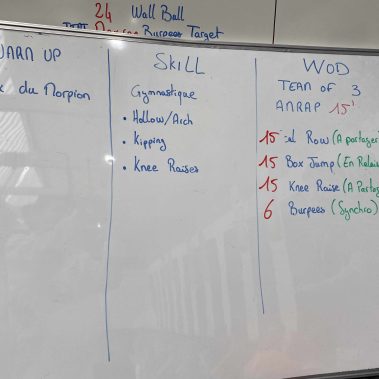 24 Wall Ball
Burpees Target
WARM UP
du Morpion
SKILL
Gymnastique
• Hollow/Arch
• Kipping
• Knee Raises
WOD
TEAM OF 3
AMRAP 15'
15 cal Row (A partager
15 Box Jump (En Relais
15 Knee Raise (A Partag
6 Burpees (Synchro)